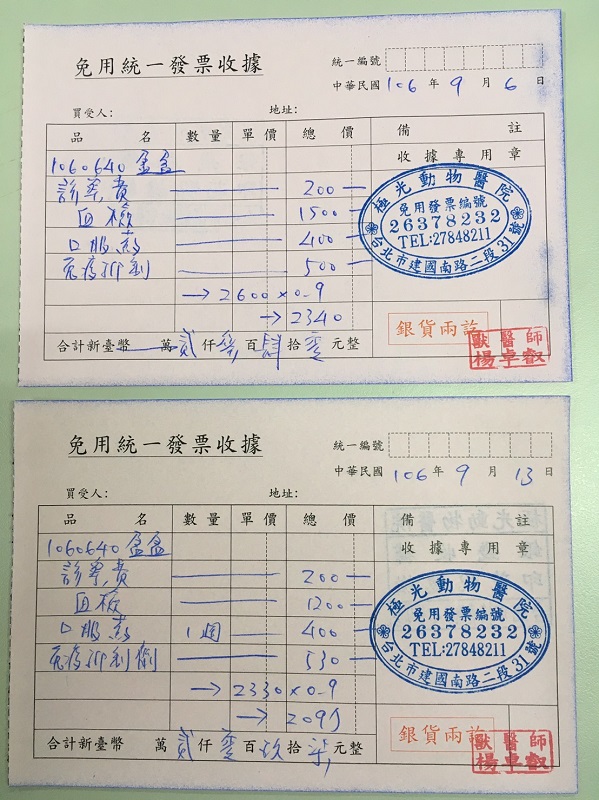 免用統一發票收據
統一編號
中華民國 106 年 9 月 6 日
買受人： 地址：
品名 數量 單價 總價 備註
收據專用章
1060640 盒盒
診察費 200
血檢 1500
口服藥 400
免疫抑制 500
→ 2600×0.9
→ 2340
合計新臺幣 萬 貳 仟 參 百 肆 拾 零 元整
極光動物醫院
免用發票編號
26378232
TEL:27848211
台北市建國南路二段31號
銀貨兩訖
獸醫師
楊卓叡
免用統一發票收據
統一編號
中華民國 106 年 9 月 13 日
買受人： 地址：
品名 數量 單價 總價 備註
收據專用章
1060640 盒盒
診察費 200
血檢 1200
口服藥 1週 400
免疫抑制劑 530
→ 2330×0.9
→ 2097
合計新臺幣 萬 貳 仟 零 百 玖 拾 柒 元整
極光動物醫院
免用發票編號
26378232
TEL:27848211
台北市建國南路二段31號
銀貨兩訖
獸醫師
楊卓叡